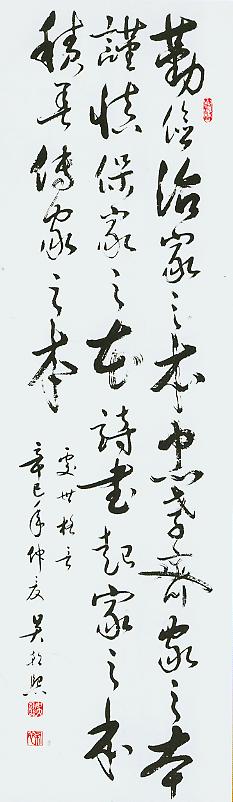 勤儉治家之本忠孝齊家之本
謹慎保家之本詩書起家之本
積善傳家之本
處世格言
辛巳年仲夏 吳